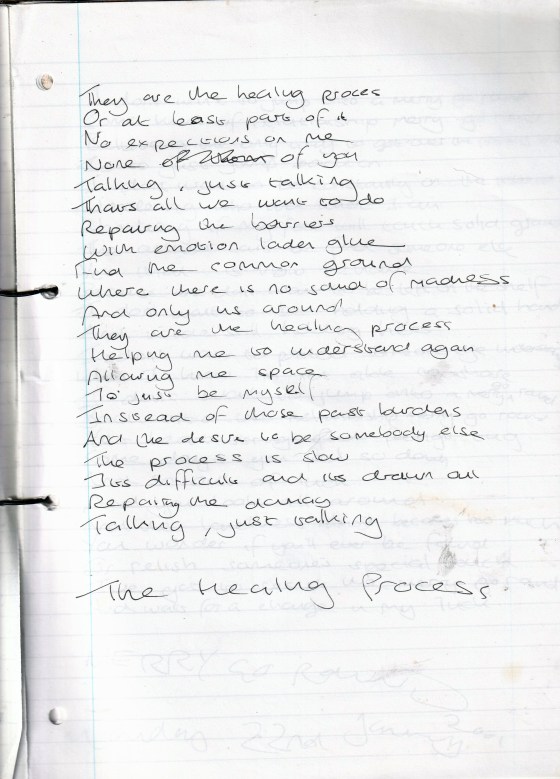 They are the healing proces
Or at least part of it
No expections on me
None of them of you
Talking, just talking
Thats all we want to do
Repairing the barriers
With emotion laden glue
Find the common ground
Where there is no sand of madness
And only us around
They are the healing process
Helping me to understand again
Allowing me space
To just be myself
Instead of those past burdens
And the desire to be somebody else
The process is slow
Its difficult and its drawn out
Repairing the damag
Talking, just talking
The Healing Process